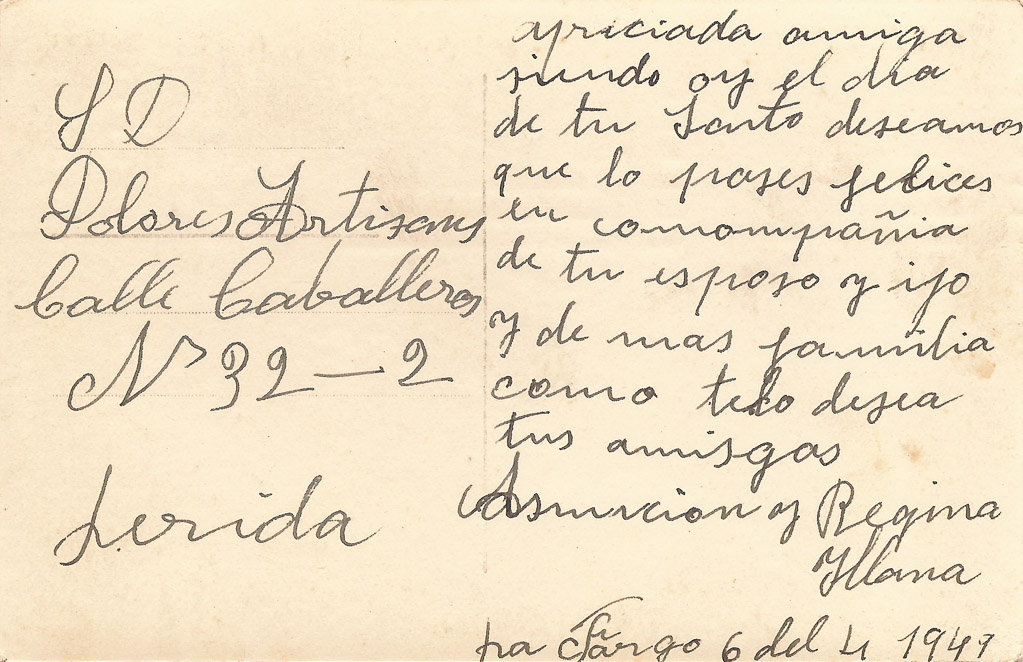 S D
Dolores Artisans
Calle Caballeros
Nº 32 — 2
Lerida
apriciada amiga
siendo oy el dia
de tu Santo deseamos
que lo pases felices
en comompañia
de tu esposo y ijo
y de mas familia
como telo desea
tus amisgas
Asuncion y Regina
Illana
6 del 4 1949